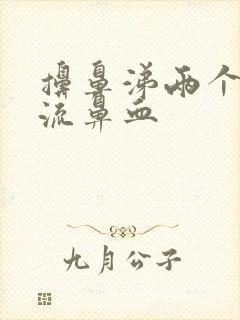 擤鼻涕两个
流鼻血
九月公子